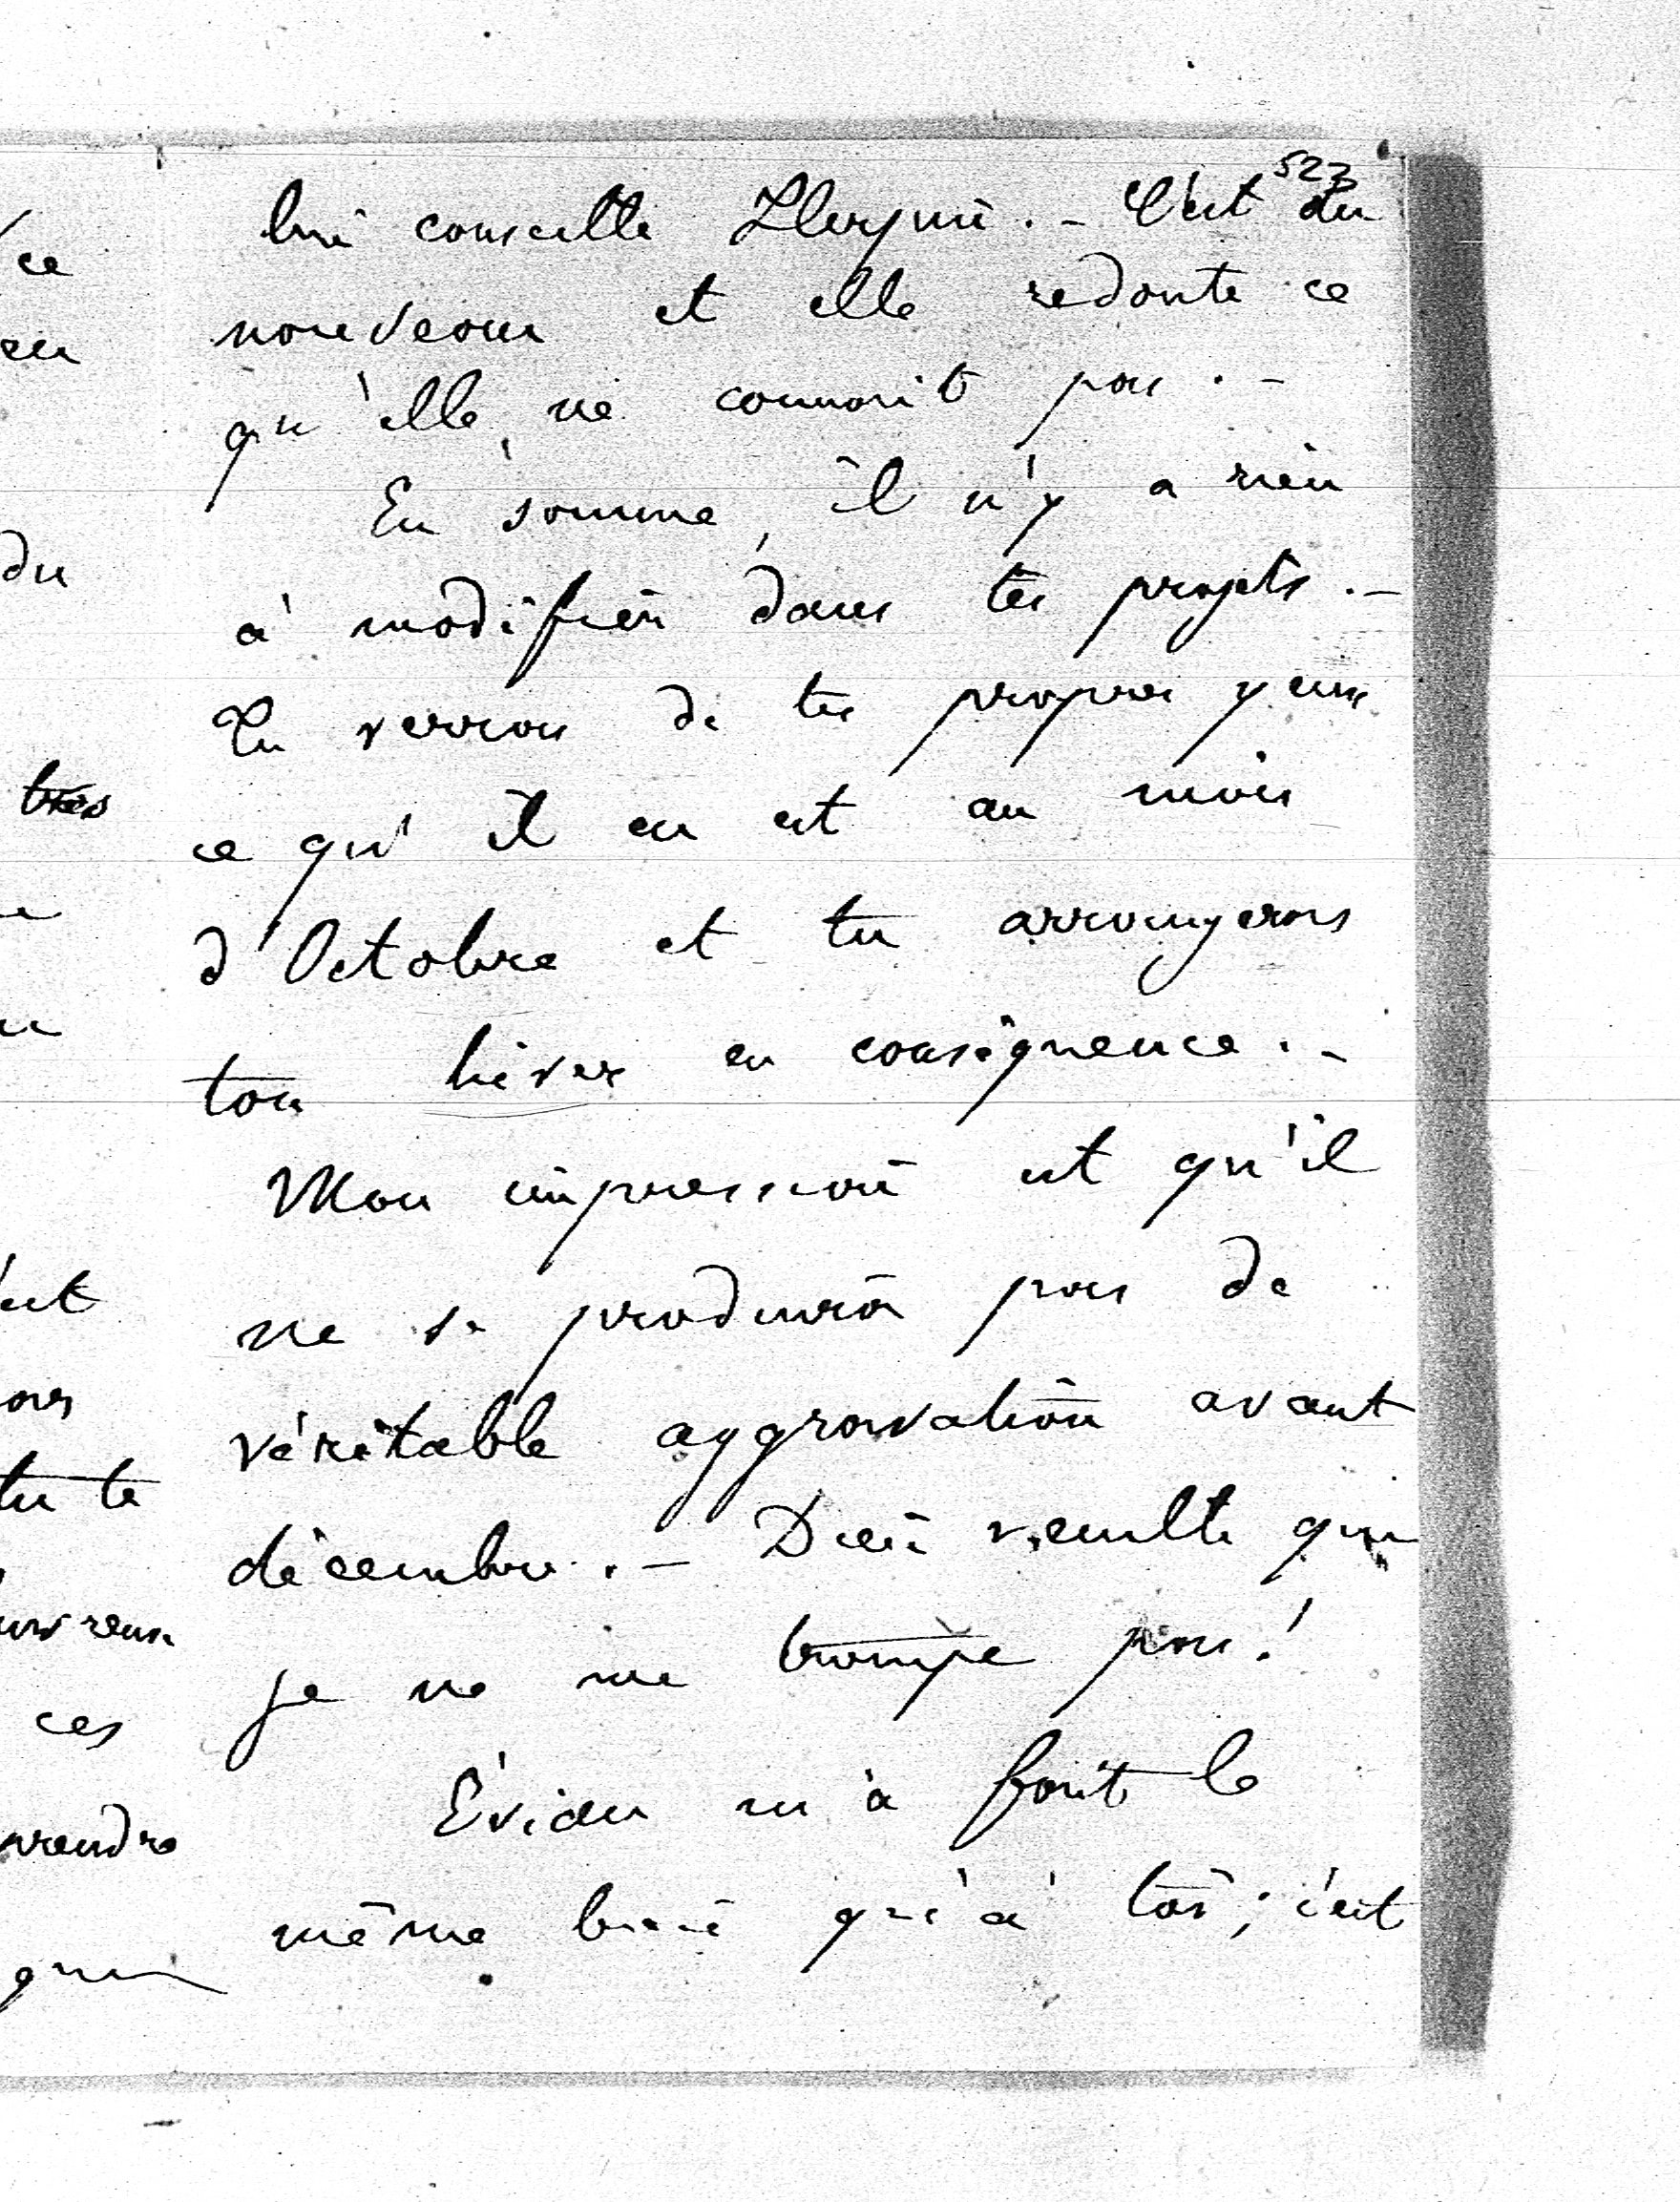 523
lui conseille . - C'est du
nouveau et elle redoute ce
qu'elle ne connait pas . -
En somme, il n'y a rien
à modifier dans tes projets . -
Tu verras de tes propres yeux
ce qu'il en est au mois
d'Octobre et tu arrangeras
ton hiver en conséquence . -
Mon impression est qu'il
ne se produira pas de
véritable aggravation avant
décembre . - Dieu veuille que
je ne me trompe pas !
Évian m'a fait le
même bien qu'à toi ; c'est
ce
du
très
tu te
ces
prendre